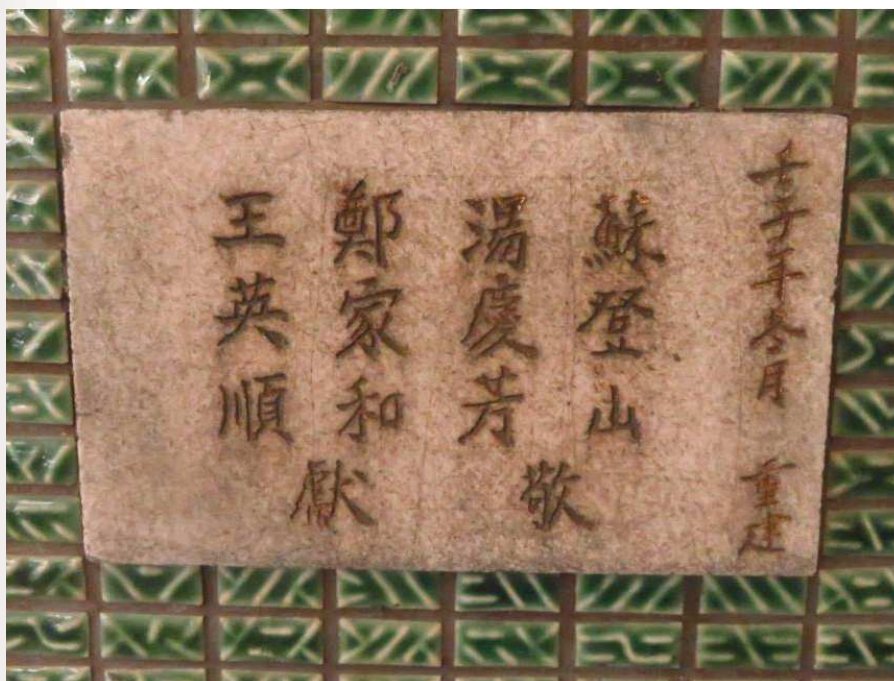 壬子年冬月 重建
蘇登山
湯慶芳
鄭家和
王英順
敬獻